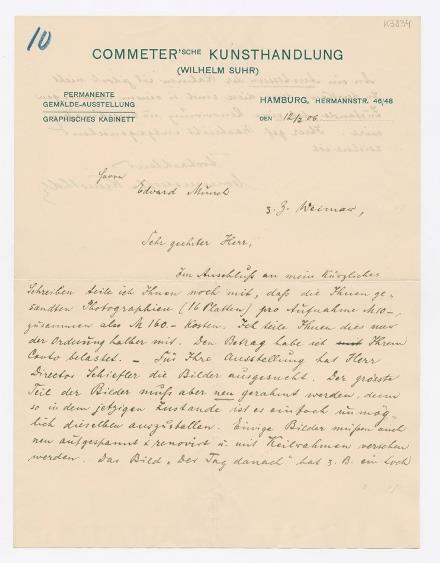 10
K3834
COMMETER'SCHE KUNSTHANDLUNG
(WILHELM SUHR)
PERMANENTE
GEMÄLDE-AUSSTELLUNG
GRAPHISCHES KABINETT
HAMBURG, HERMANNSTR. 46/48
DEN 12/3 06
Herrn
Edvard Munch
z. Z. Weimar,
Sehr geehrter Herr,
Im Anschluß an mein kürzliches
Schreiben teile ich Ihnen noch mit, daß die Ihnen ge-
sandten Photographien (16 Platten) pro Aufnahme M 10-,
zusammen also M 160.- kosten. Ich teile Ihnen dies nur
der Ordnung halber mit. Den Betrag habe ich Ihrem
Conto belastet. - Für Ihre Ausstellung hat Herr
Director Schiefler die Bilder ausgesucht. Der grösste
Teil der Bilder muß aber neu gerahmt werden, denn
so in dem jetzigen Zustande ist es einfach unmög-
lich dieselben auszustellen. Einige Bilder müßen auch
neu aufgespannt & renovirt u. mit Keilrahmen versehen
werden. Das Bild „Der Tag danach" hat z. B. ein Loch